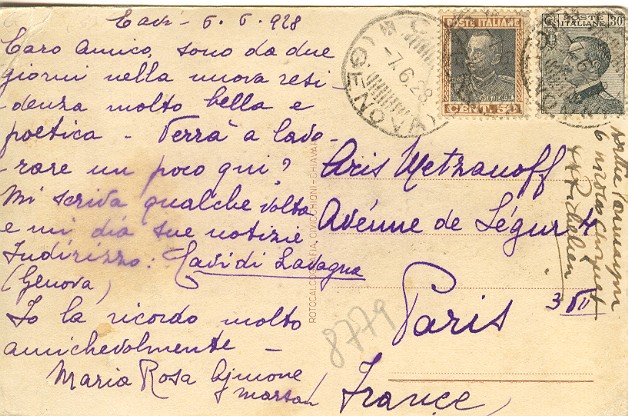 Cavi - 6. 6. 928
Caro Amico, sono da due
giorni nella nuova resi-
denza molto bella e
poetica - Verrà a lavo-
rare un poco qui?
Mi scriva qualche volta
e mi dia sue notizie
Indirizzo: Cavi di Lavagna
(Genova)
Io la ricordo molto
amichevolmente -
Maria Rosa
POSTE ITALIANE
CENT. 50
POSTE ITALIANE
30
-7.6.28
Aris Metzanoff
Avénue de Ségur 4
Paris
France
8779